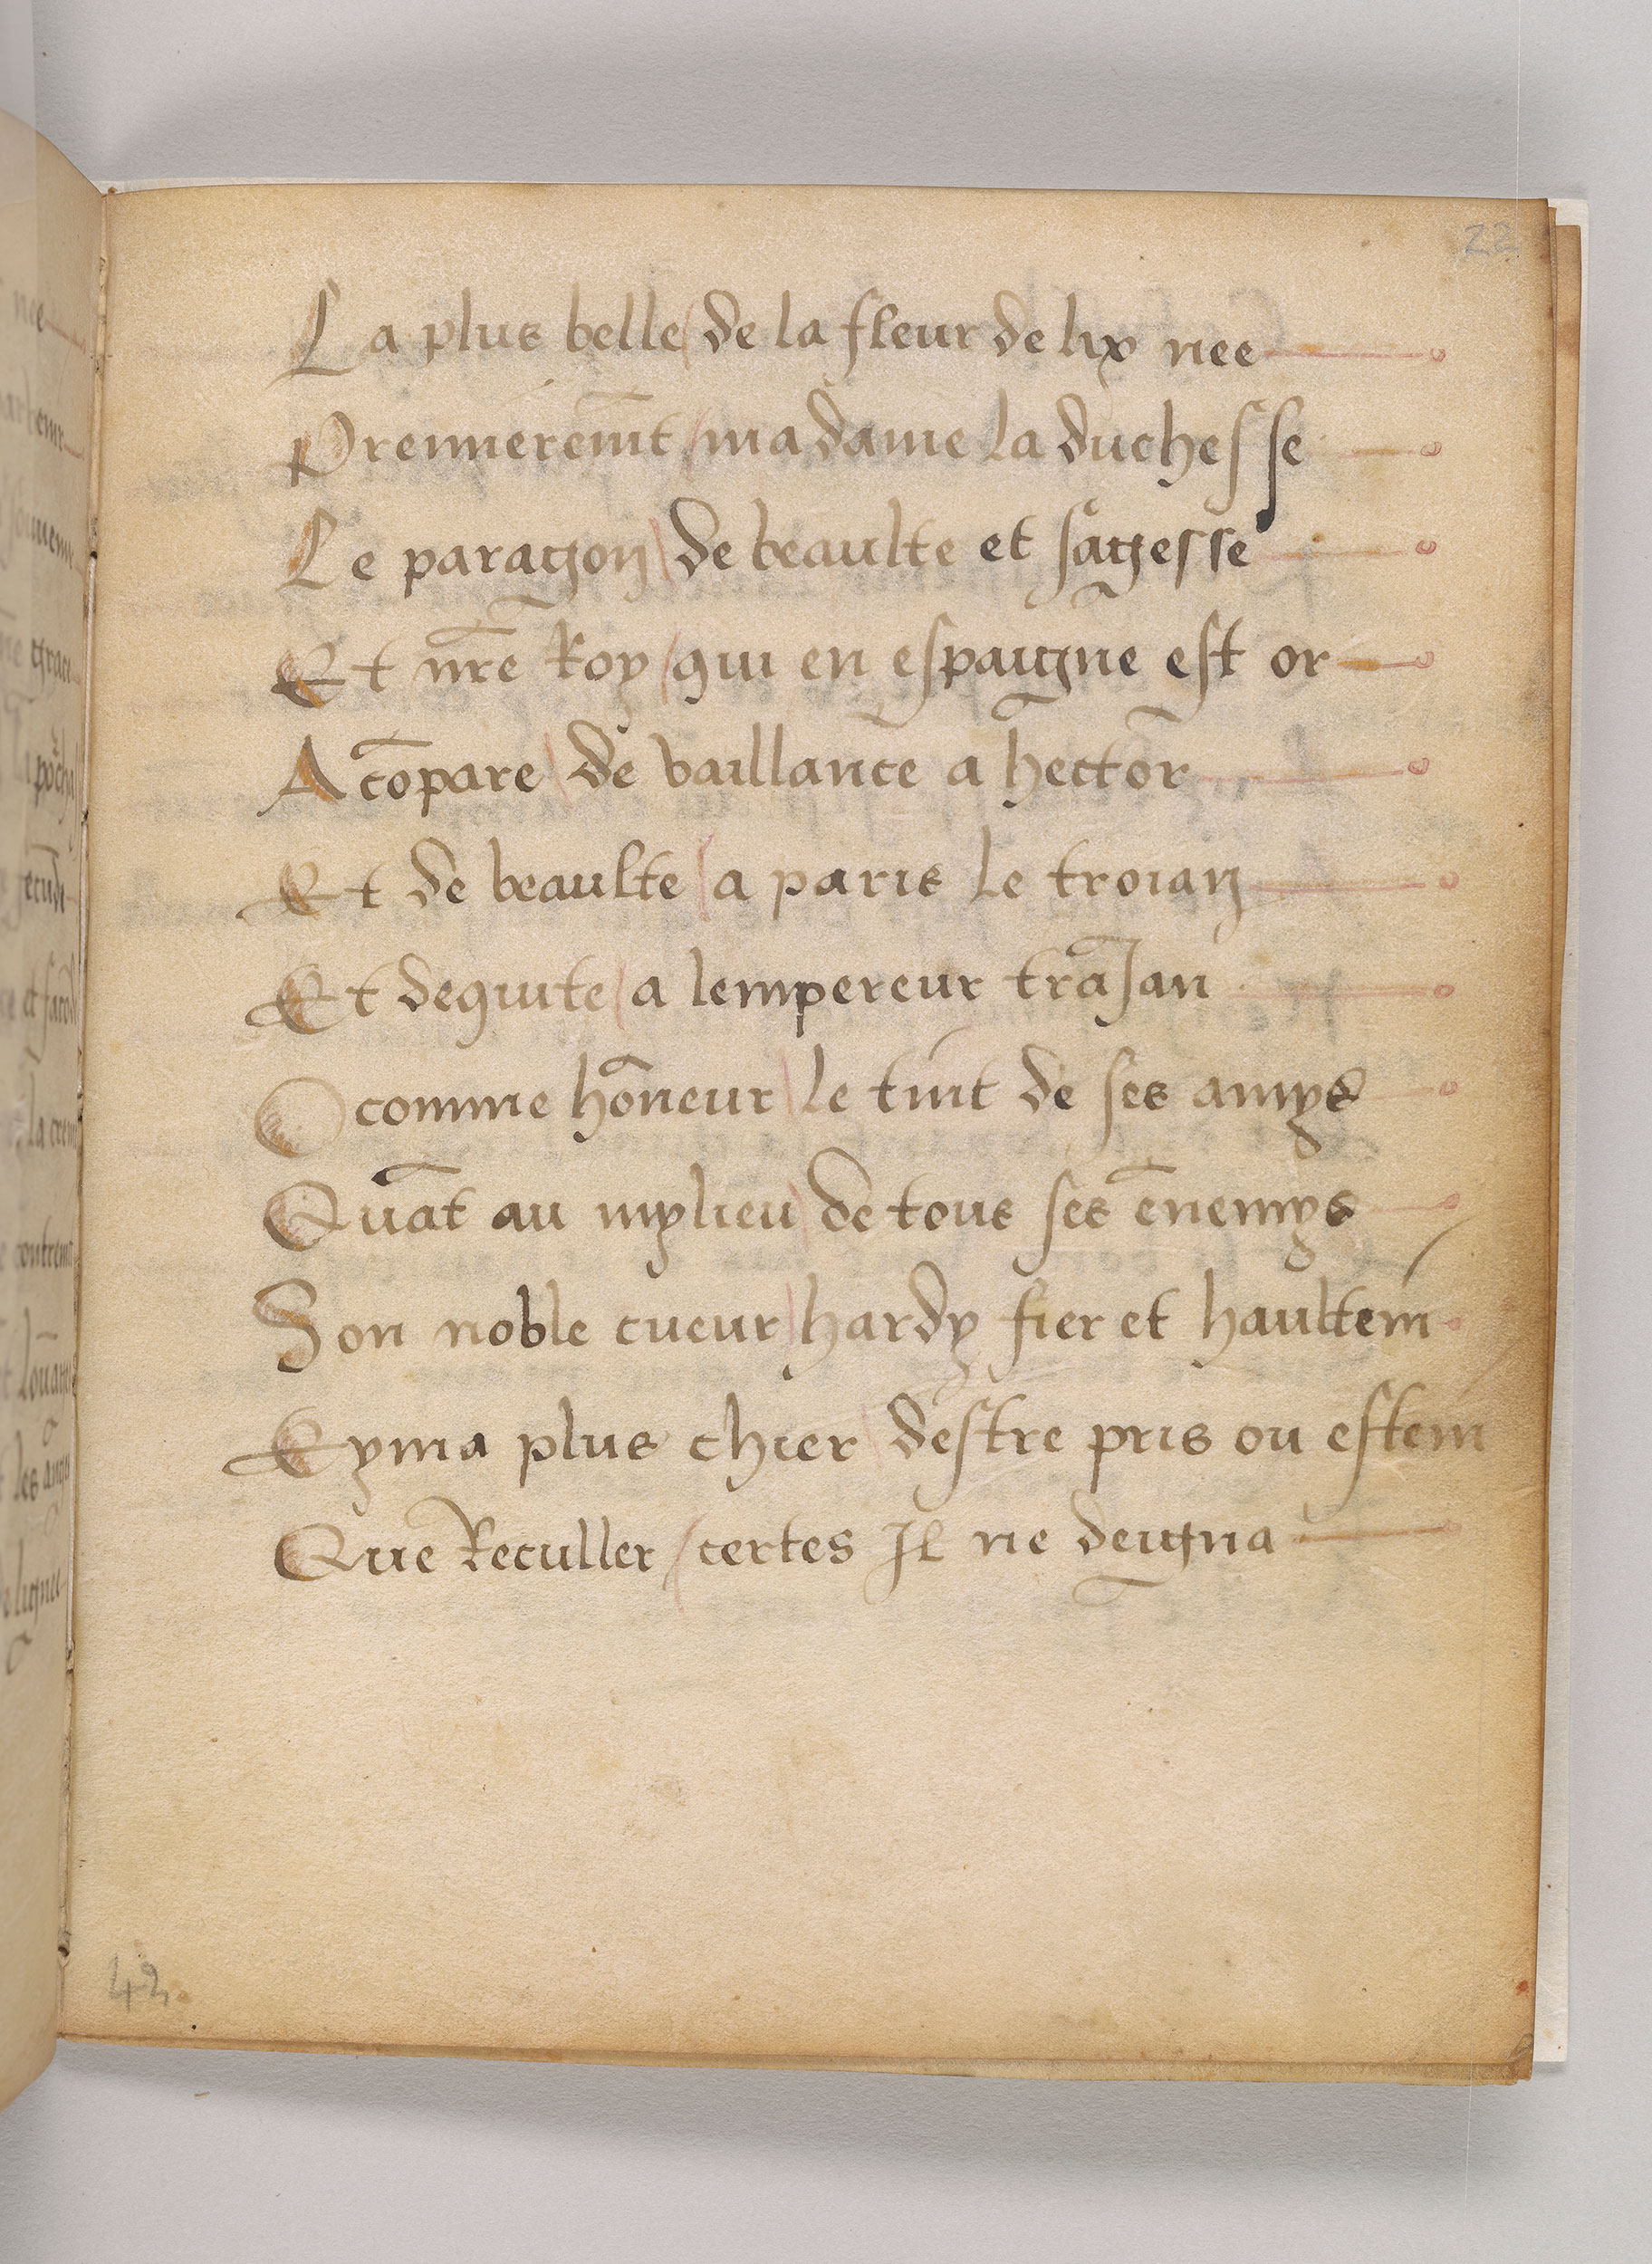 22
La plus belle / de la fleur de lix nee
Premieremt̄ / madame la duchesse
Le paragon / de beaulte et sagesse
Et nr̄e Roy / qui en espaigne est or
A cōpare / de vaillance a hector
Et de beaulte / a paris le troian
Et dequite / a lempereur traJan
O comme hōneur / le tint de ses amys
Quāt au mylieu / de tous ses ēnemys
Son noble cueur / hardy fier et haultein
Eyma plus chier / destre pris ou estein
Que Reculler / certes Il ne deigna
42